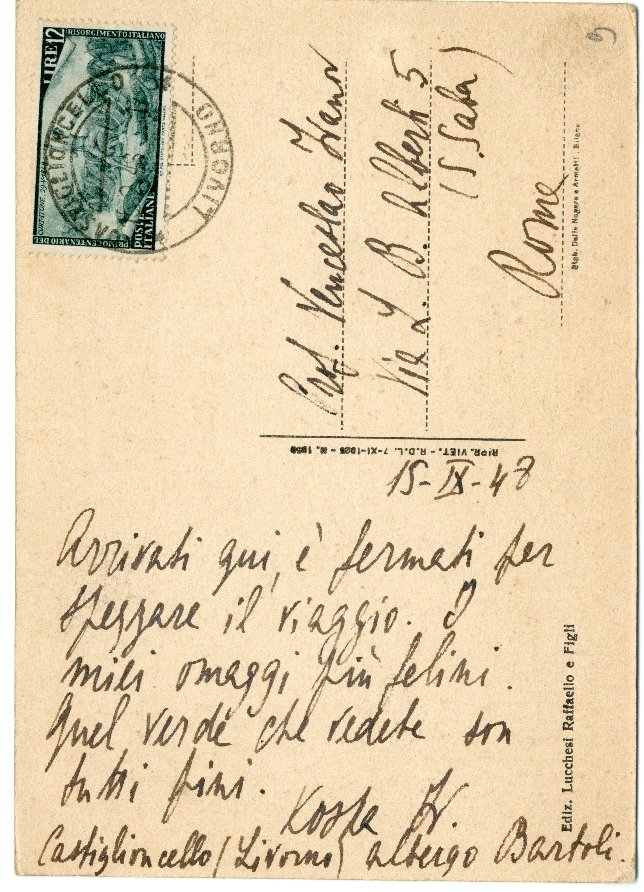 LIRE 12
RISORGIMENTO ITALIANO
POSTE ITALIANE
PRIMO CENTENARIO DEL
CASTIGLIONCELLO
LIVORNO
Prof. Venceslao Ivanov
Via L. B. Alberti 5
(S. Saba)
Roma
Stab. Dalle Nogare e Armetti - Milano
RIPR. VIET. - R.D.L. 7-XI-1925 - N. 1950
15-IX-48
Arrivati qui, è fermati per
spezzare il viaggio. I
miei omaggi più felini.
Quel verde che vedete son
tutti pini.
Kosta
Castiglioncello (Livorno) albergo Bartoli.
Ediz. Lucchesi Raffaello e Figli